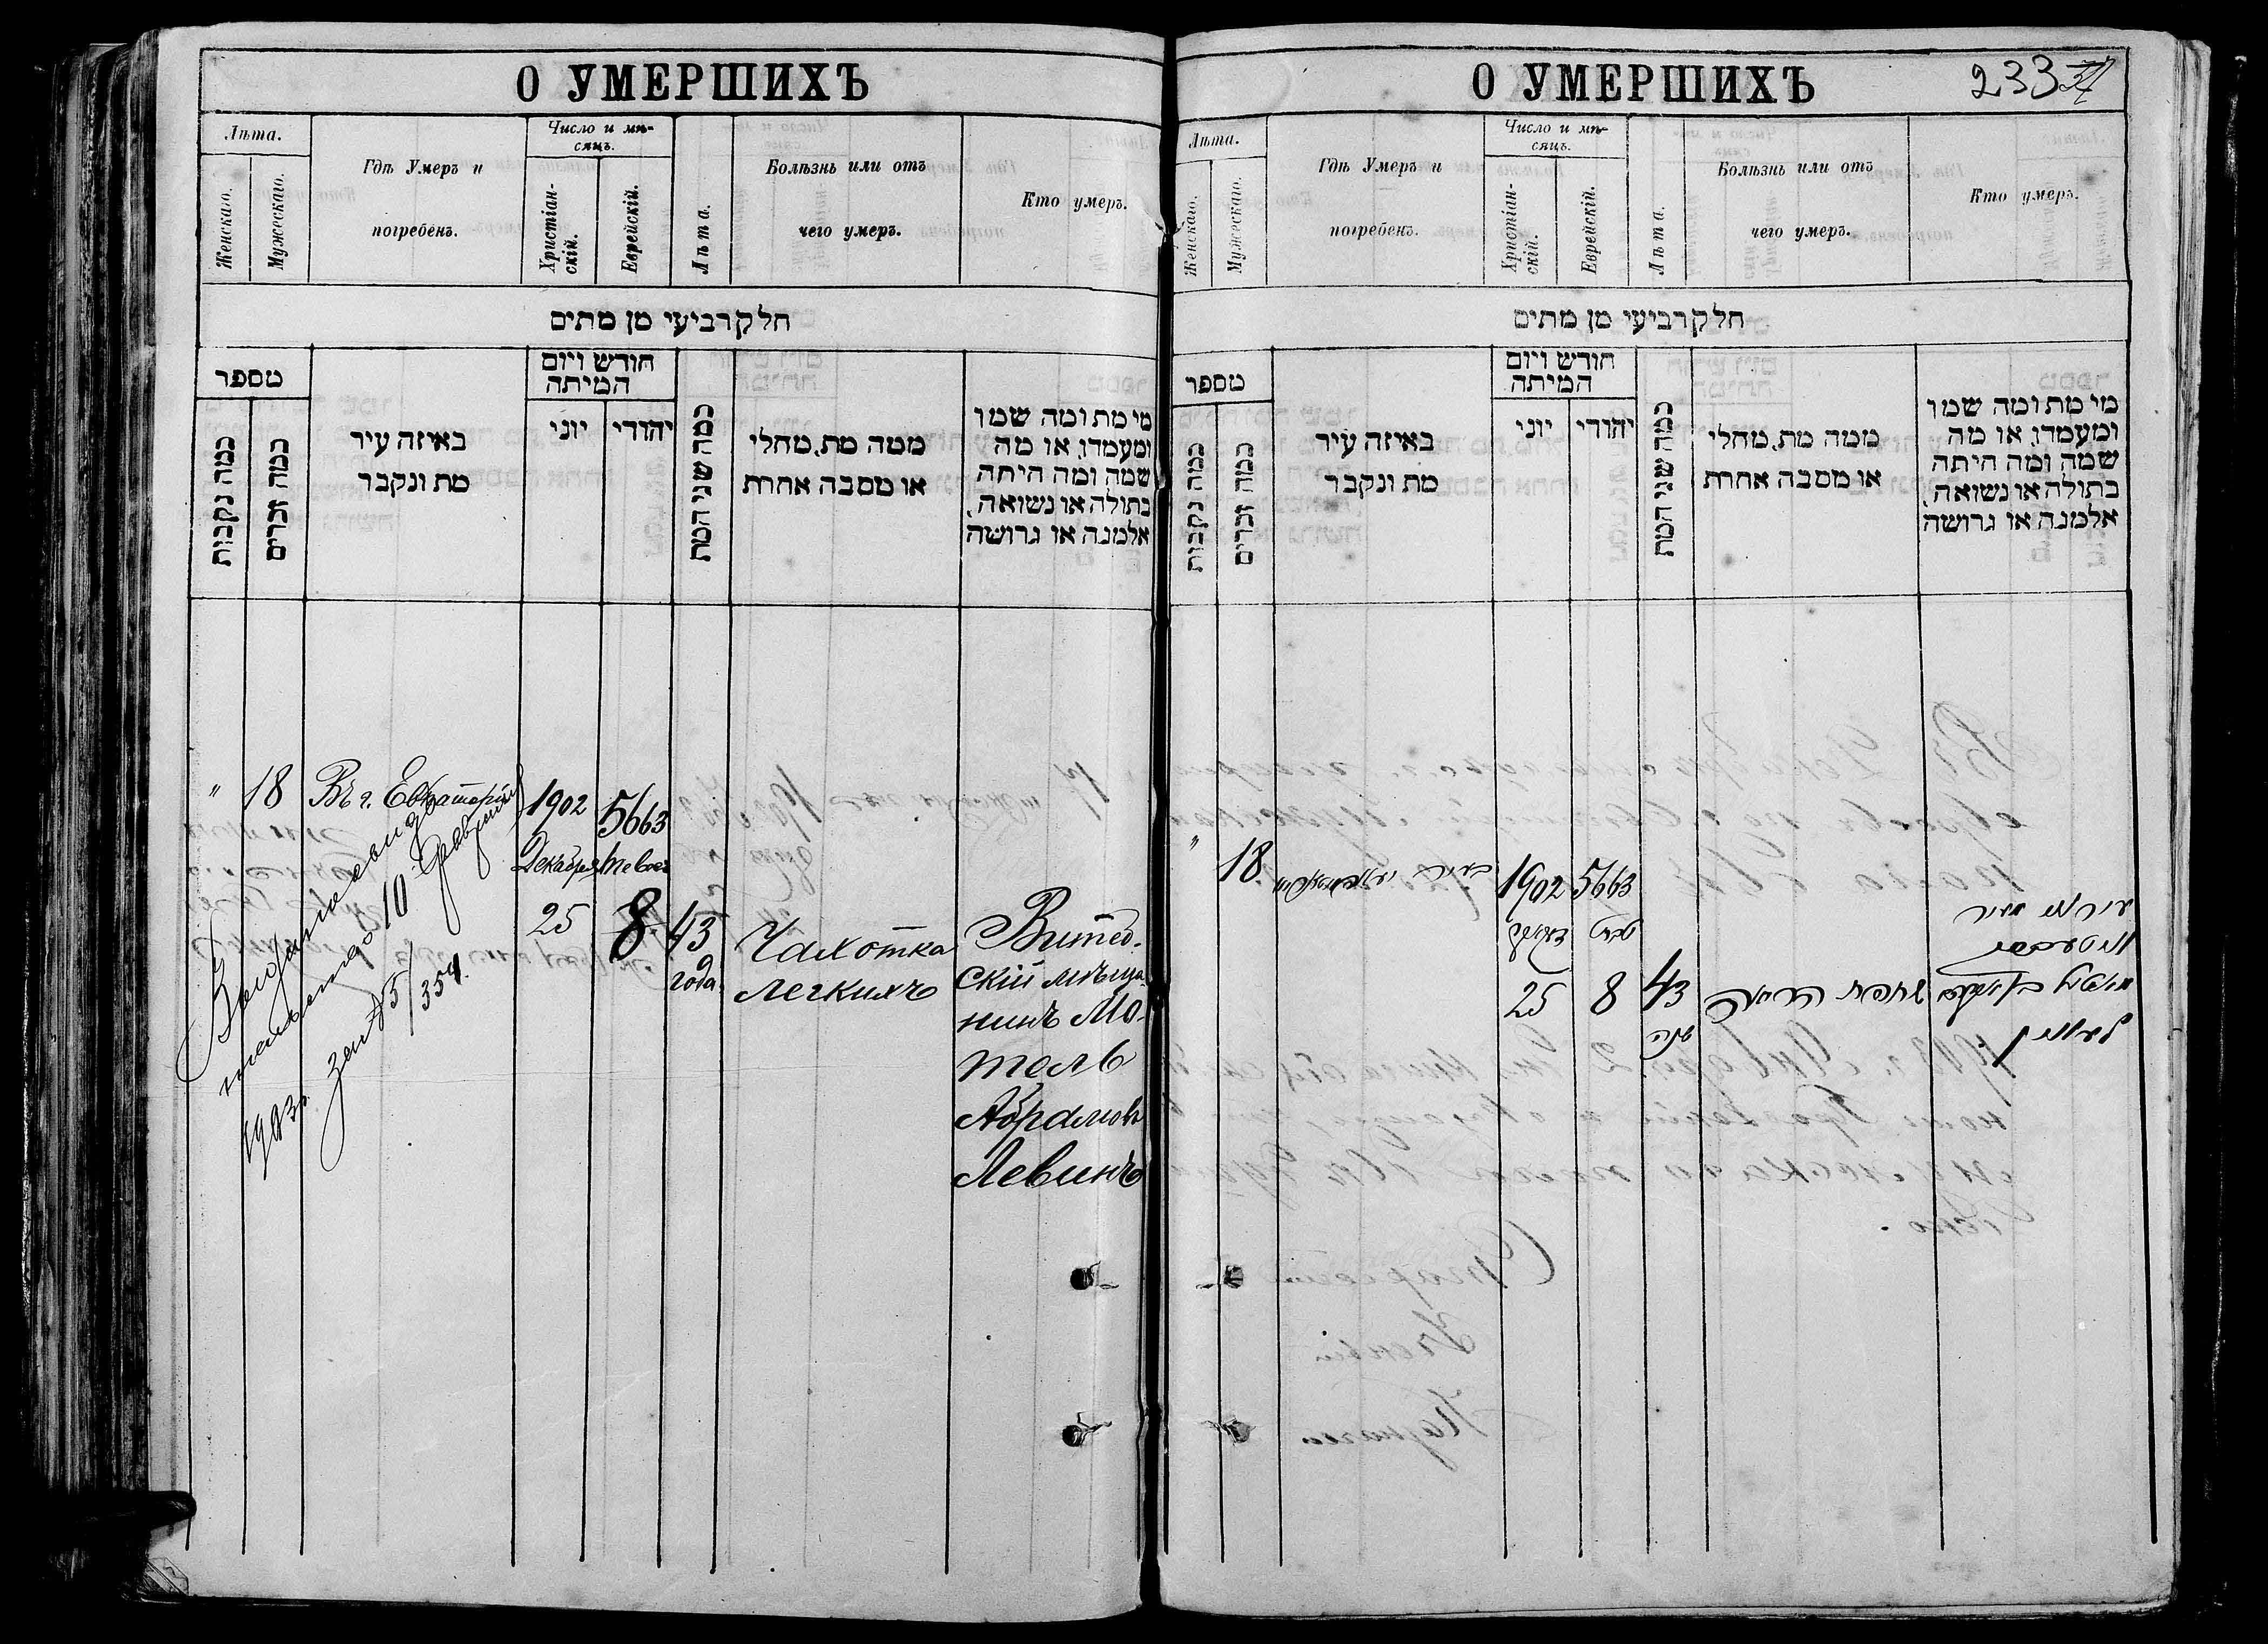 О УМЕРШИХЪ
Лѣта.
Женскаго.
Мужескаго.
Гдѣ Умеръ и
погребенъ.
Число и мѣ-
сяцъ.
Христіан-
скій.
Еврейскій.
Лѣта.
Болѣзнь или отъ
чего умеръ.
Кто умеръ.
חלק רביעי מן מתים
מספר
כמה נקבות
כמה זכרים
באיזה עיר
מת ונקבר
חודש ויום
המיתה
יוני
יהודי
כמה שני המת
ממה מת, מחלי
או מסבה אחרת
מי מת ומה שמו
ומעמדו, או מה
שמה ומה היתה
בתולה או נשואה,
אלמנה או גרושה
"
18
Въ г. Евпаторіи
1902
Декабря
25
5663
Тевес
8
43
года
Чахотка
легкихъ
Витеб-
скій мѣща-
нинъ Мо-
тель
Абрамовъ
Левинъ
10 Февраля
1903 г.
за № 5/354.
О УМЕРШИХЪ
233
Лѣта.
Женскаго.
Мужескаго.
Гдѣ Умеръ и
погребенъ.
Число и мѣ-
сяцъ.
Христіан-
скій.
Еврейскій.
Лѣта.
Болѣзнь или отъ
чего умеръ.
Кто умеръ.
חלק רביעי מן מתים
מספר
כמה נקבות
כמה זכרים
באיזה עיר
מת ונקבר
חודש ויום
המיתה
יוני
יהודי
כמה שני המת
ממה מת, מחלי
או מסבה אחרת
מי מת ומה שמו
ומעמדו, או מה
שמה ומה היתה
בתולה או נשואה,
אלמנה או גרושה
"
18
1902
דעקאבר
25
5663
טבת
8
43
שנה